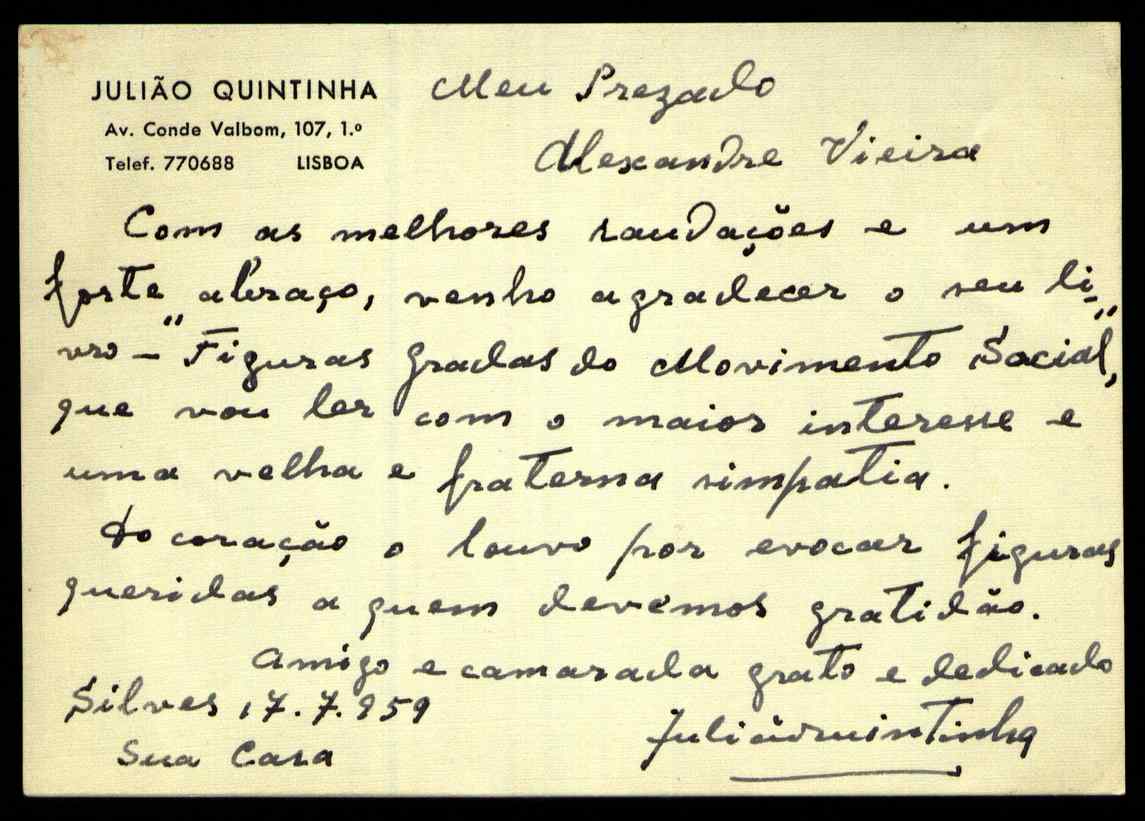 JULIÃO QUINTINHA
Av. Conde Valbom, 107, 1.º
Telef. 770688 LISBOA
Meu Prezado
Alexandre Vieira
Com as melhores saudações e um
forte abraço, venho agradecer o seu li-
vro - "Figuras Gradas do Movimento Social",
que vou ler com o maior interesse e
uma velha e fraterna simpatia.
Do coração o louvo por evocar figuras
queridas a quem devemos gratidão.
Amigo e camarada grato e dedicado
Silves, 17.7.959
Julião Quintinha
Sua Casa